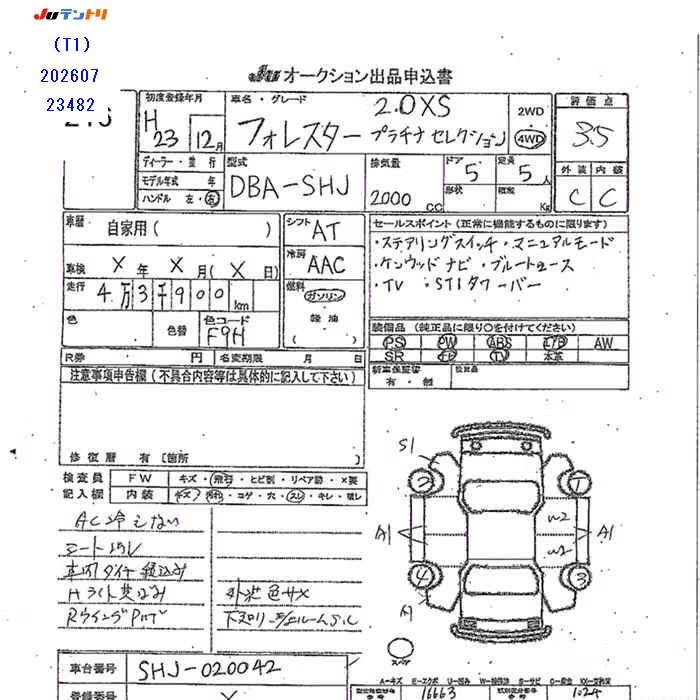 Juテントリ
(T1)
202607
23482
Ju オークション出品申込書
初度登録年月
H 23 12月
車名・グレード
2.0XS
フォレスター プラチナ セレクション
2WD
4WD
評価点
3.5
外装 内装
C C
ディーラー・並行
モデル年式 年
ハンドル 左・右
型式
DBA-SHJ
排気量
2000 CC
ドア 5
形状
定員 5人
積載 Kg
車歴 自家用( )
シフト AT
冷房 AAC
燃料 ガソリン
軽油
車検 X年 X月(X日)
走行 4万3千900km
色
色替
色コード F9H
R券 円
名変期限 月 日
セールスポイント(正常に機能するものに限ります)
・ステアリングスイッチ・マニュアルモード
・ケンウッドナビ・ブルートゥース
・TV ・STIタワーバー
装備品(純正品に限り○を付けてください)
PS PW ABS エアB AW
SR ナビ TV 本革
新車保証書
有・無
注意事項申告欄(不具合内容等は具体的に記入して下さい)
修復歴 有〔箇所 〕
検査員
記入欄
FW キズ・飛石・ヒビ割・リペア跡・X要
内装 キズ・汚れ・コゲ・穴・スレ・キレ・破レ
AC冷えない
シート汚レ
Hライト
外装色サメ
車台番号 SHJ-020042
登録番号
S1
2
1
A1
W2
W2
A1
4
3
A1
スペア
A=キズ E=エクボ U=凹み W=補修跡 S=サビ C=腐食 XX=交換済
16663
1024